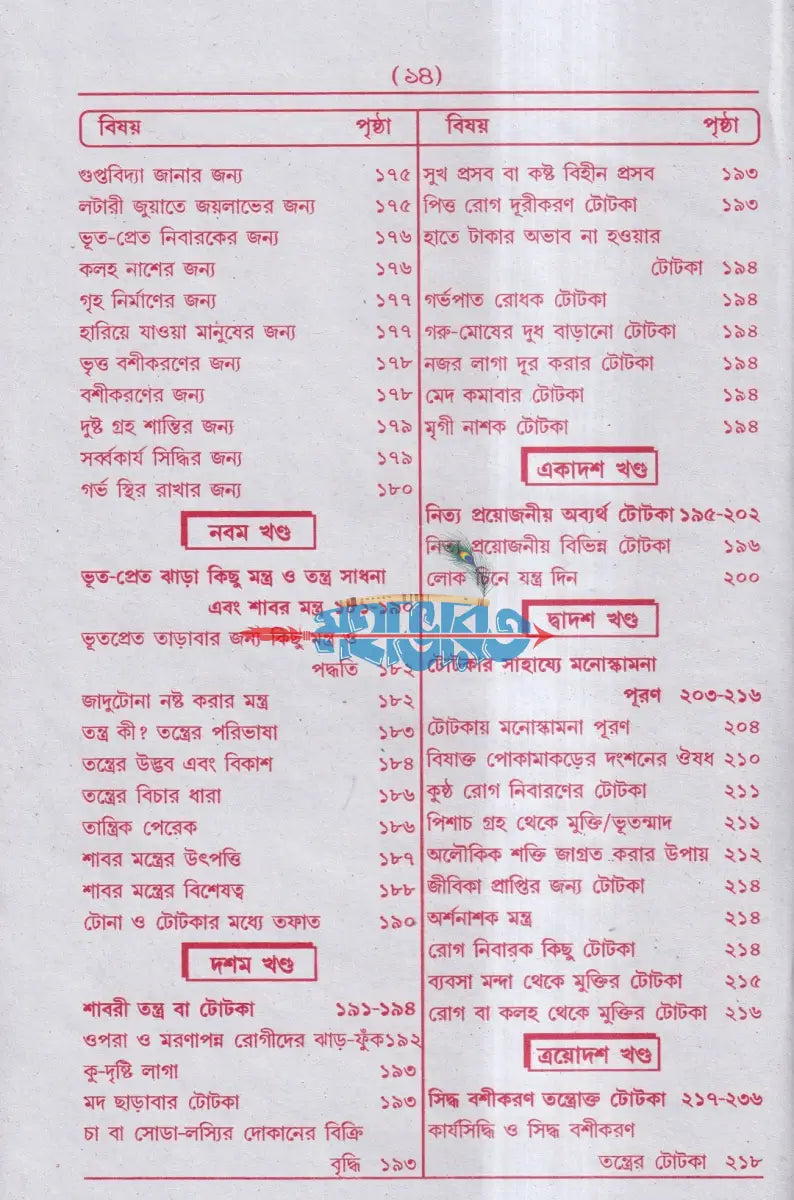 (১৪)
বিষয় পৃষ্ঠা
গুপ্তবিদ্যা জানার জন্য ১৭৫
লটারী জুয়াতে জয়লাভের জন্য ১৭৫
ভূত-প্রেত নিবারকের জন্য ১৭৬
কলহ নাশের জন্য ১৭৬
গৃহ নির্মাণের জন্য ১৭৭
হারিয়ে যাওয়া মানুষের জন্য ১৭৭
ভৃত্ত বশীকরণের জন্য ১৭৮
বশীকরণের জন্য ১৭৮
দুষ্ট গ্রহ শান্তির জন্য ১৭৯
সর্ব্বকার্য সিদ্ধির জন্য ১৭৯
গর্ভ স্থির রাখার জন্য ১৮০
নবম খণ্ড
ভূত-প্রেত ঝাড়া কিছু মন্ত্র ও তন্ত্র সাধনা
এবং শাবর মন্ত্র ১৮১-১৯০
ভূতপ্রেত তাড়াবার জন্য কিছু মন্ত্র ও
পদ্ধতি ১৮২
জাদুটোনা নষ্ট করার মন্ত্র ১৮২
তন্ত্র কী? তন্ত্রের পরিভাষা ১৮৩
তন্ত্রের উদ্ভব এবং বিকাশ ১৮৪
তন্ত্রের বিচার ধারা ১৮৬
তান্ত্রিক পেরেক ১৮৬
শাবর মন্ত্রের উৎপত্তি ১৮৭
শাবর মন্ত্রের বিশেষত্ব ১৮৮
টোনা ও টোটকার মধ্যে তফাত ১৯০
দশম খণ্ড
শাবরী তন্ত্র বা টোটকা ১৯১-১৯৪
ওপরা ও মরণাপন্ন রোগীদের ঝাড়-ফুঁক১৯২
কু-দৃষ্টি লাগা ১৯৩
মদ ছাড়াবার টোটকা ১৯৩
চা বা সোডা-লস্যির দোকানের বিক্রি
বৃদ্ধি ১৯৩
বিষয় পৃষ্ঠা
সুখ প্রসব বা কষ্ট বিহীন প্রসব ১৯৩
পিত্ত রোগ দূরীকরণ টোটকা ১৯৩
হাতে টাকার অভাব না হওয়ার
টোটকা ১৯৪
গর্ভপাত রোধক টোটকা ১৯৪
গরু-মোষের দুধ বাড়ানো টোটকা ১৯৪
নজর লাগা দূর করার টোটকা ১৯৪
মেদ কমাবার টোটকা ১৯৪
মৃগী নাশক টোটকা ১৯৪
একাদশ খণ্ড
নিত্য প্রয়োজনীয় অব্যর্থ টোটকা ১৯৫-২০২
নিত্য প্রয়োজনীয় বিভিন্ন টোটকা ১৯৬
লোক চিনে যন্ত্র দিন ২০০
মহাভারত
দ্বাদশ খণ্ড
টোটকার সাহায্যে মনোস্কামনা
পূরণ ২০৩-২১৬
টোটকায় মনোস্কামনা পূরণ ২০৪
বিষাক্ত পোকামাকড়ের দংশনের ঔষধ ২১০
কুষ্ঠ রোগ নিবারণের টোটকা ২১১
পিশাচ গ্রহ থেকে মুক্তি/ভূতন্মাদ ২১১
অলৌকিক শক্তি জাগ্রত করার উপায় ২১২
জীবিকা প্রাপ্তির জন্য টোটকা ২১৪
অর্শনাশক মন্ত্র ২১৪
রোগ নিবারক কিছু টোটকা ২১৪
ব্যবসা মন্দা থেকে মুক্তির টোটকা ২১৫
রোগ বা কলহ থেকে মুক্তির টোটকা ২১৬
ত্রয়োদশ খণ্ড
সিদ্ধ বশীকরণ তন্ত্রোক্ত টোটকা ২১৭-২৩৬
কার্যসিদ্ধি ও সিদ্ধ বশীকরণ
তন্ত্রের টোটকা ২১৮